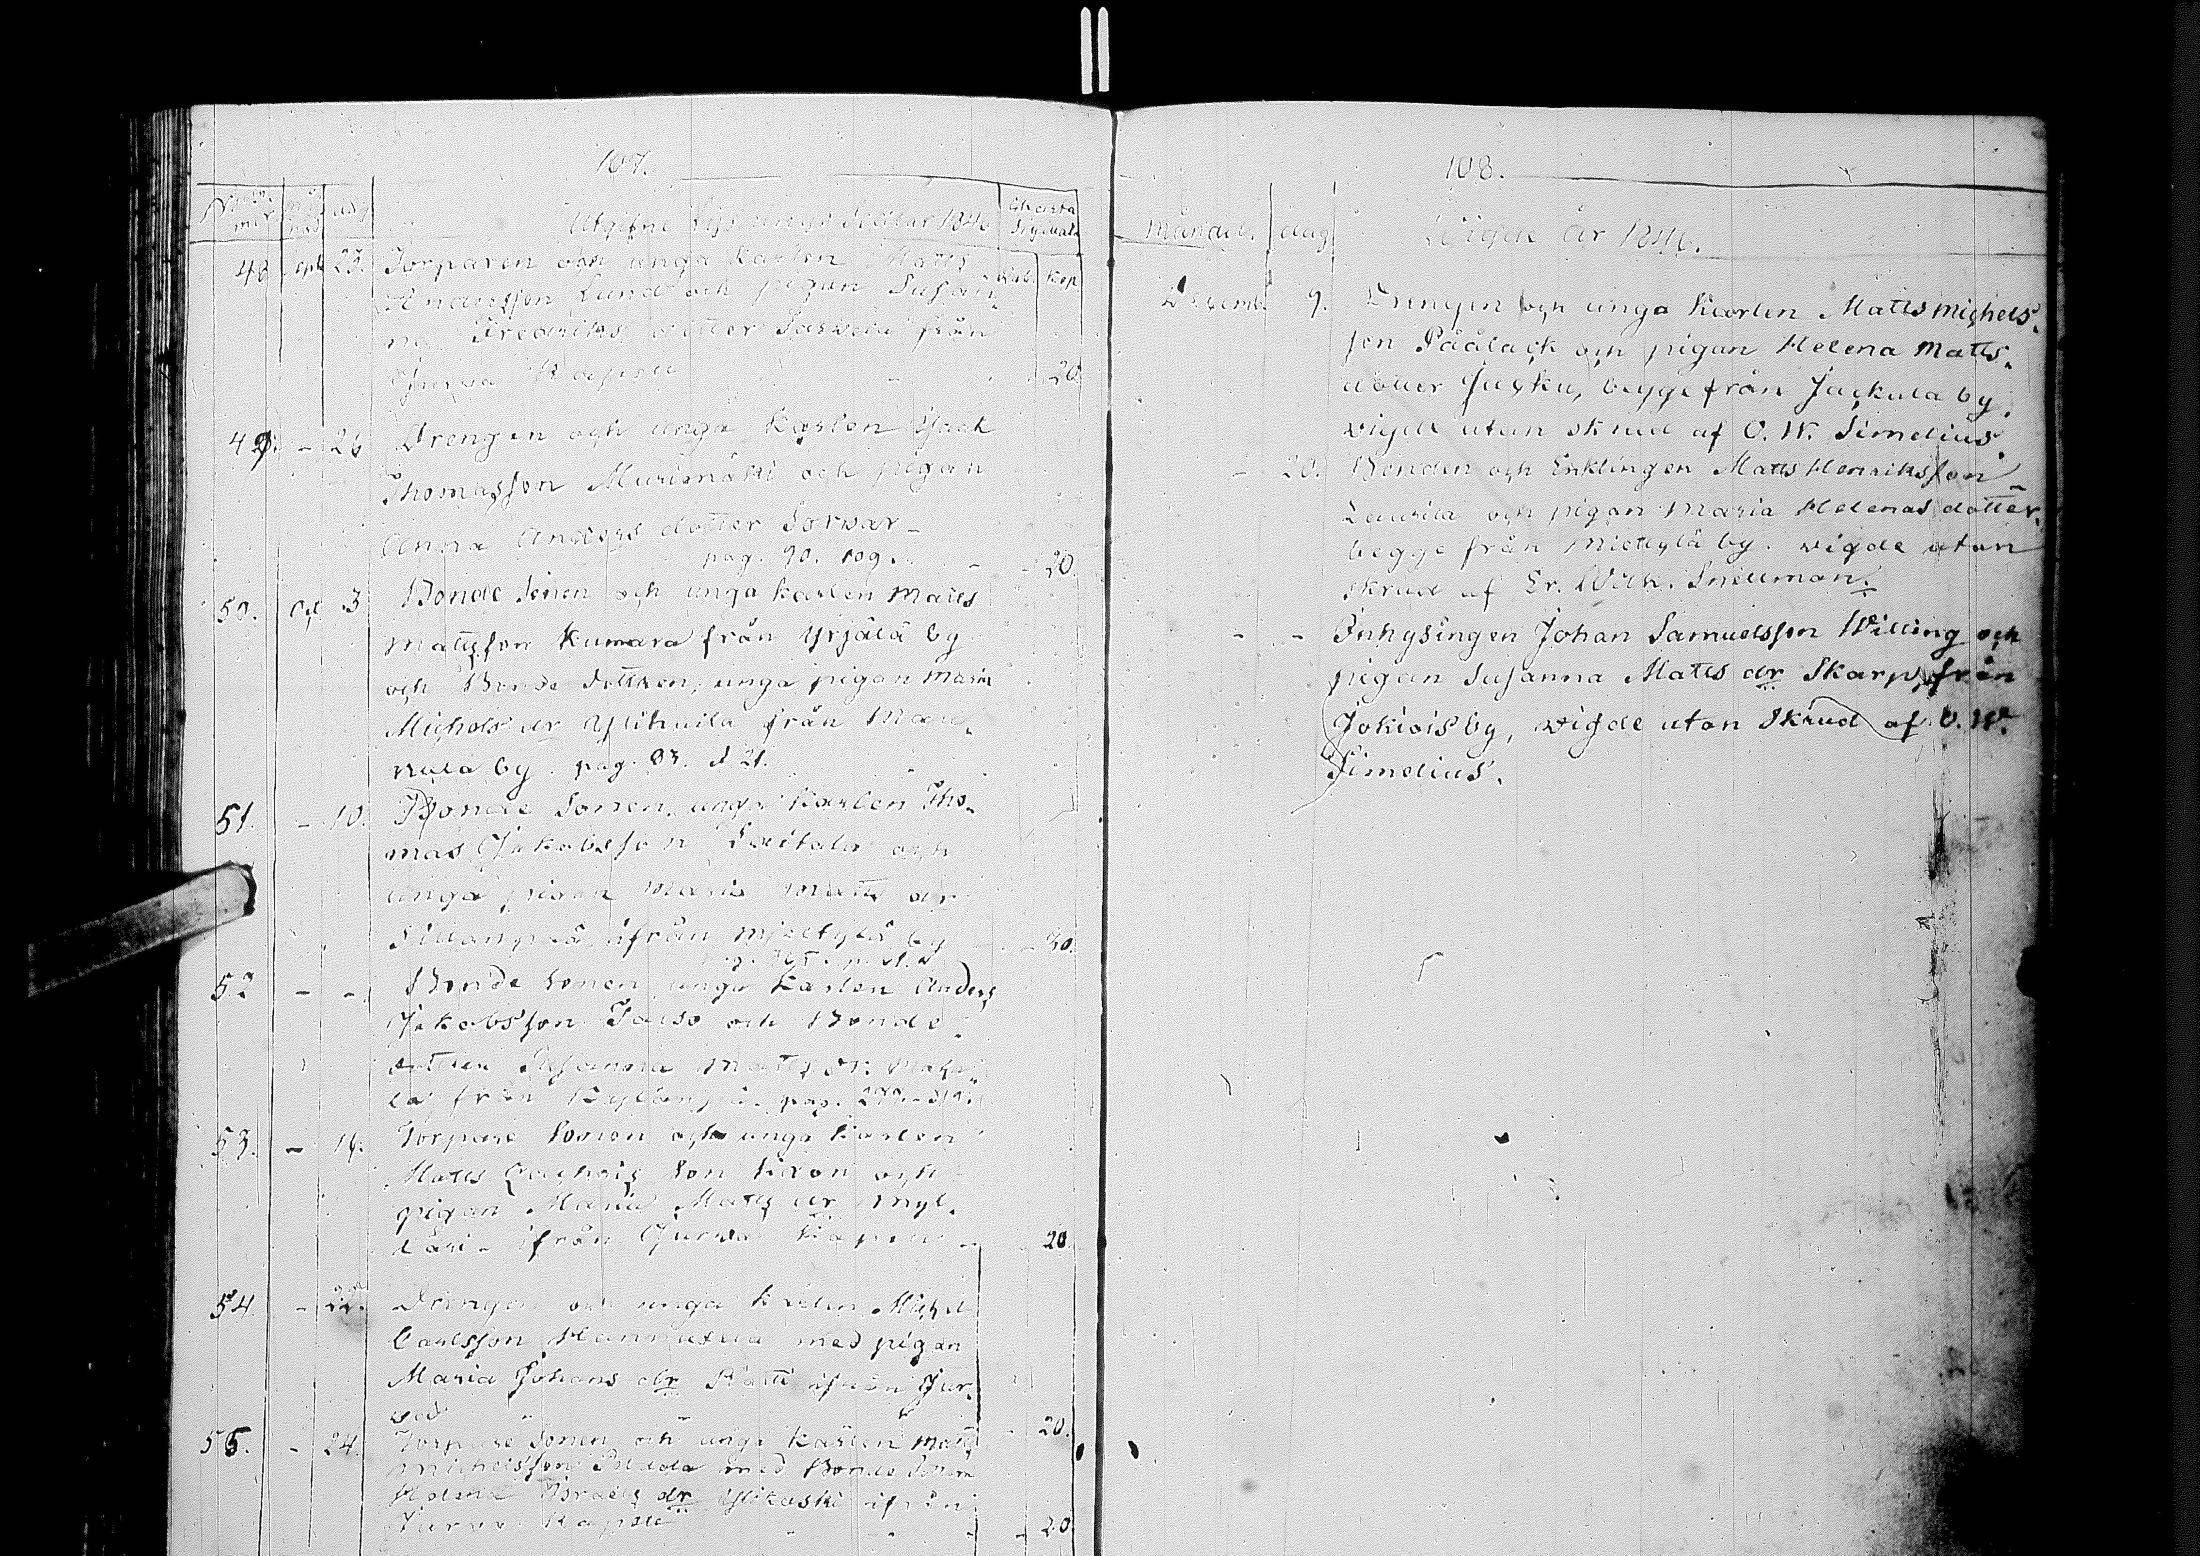 107.
Utgifne Lysnings Sedlar 1846
48. Sept 25. Torparen och unga Karlen Matts
Andersson Lund och pigan Susan-
na Fredriks dotter från
Jurva Kapell 20
49. - 26 Drengen och unga Karlen Jack
Thomasson Murimäki och pigan
Anna Anders dotter Sorvar-
pag. 90. 109. - - 20.
50. Oct 3 Bonde Sonen och unga karlen Matts
Mattsson Kumara från Yrjälä by
och Bonde dottren, unga pigan Maria
Michels dr Ylihuila från Mau-
nula by. pag. 93. d 21.
51. - 10. Bonde Sonen, unga Karlen Tho-
mas Jakobsson Laitala och
unga pigan Maria Matts dr
Sillanpää ifrån Mietylä by - 30.
52 - - Bonde Sonen unga Karlen Anders
Jakobsson och Bonde
dottren Susanna Matts dr.
la från pag.
53. - 14. Torpare Sonen och unga Karlen
Matts son och
pigan Maria Matts dr Myl-
läri - ifrån Jurva Kapell - 20.
54. - 22. Drengen och unga Karlen Michel
Carlsson med pigan
Maria Johans dr Rätti ifrån Jur-
va - 20.
55. - 24. Torpare Sonen och unga Karlen Matts
Michelsson med Bonde dottren
Helena Israels dr Ylikoski ifrån
Jurva Kapell - 20.
108.
Månad. dag Vigde År 1846.
Decemb. 9. Drengen och unga Karlen Matts Michels-
son Päälack och pigan Helena Matts-
dotter Jusku, begge från Jackula by,
vigde utan skrud af O. W. Simelius.
- 20. Bonden och Enklingen Matts Henriksson
Laurila och pigan Maria Helenas dotter,
begge från Mietylä by. vigde utan
skrud af Er. Wilh. Snellman.
- - Inhysingen Johan Samuelsson Willing och
pigan Susanna Matts dr Skarp, från
Jokiois by, vigde utan skrud af O. W.
Simelius.